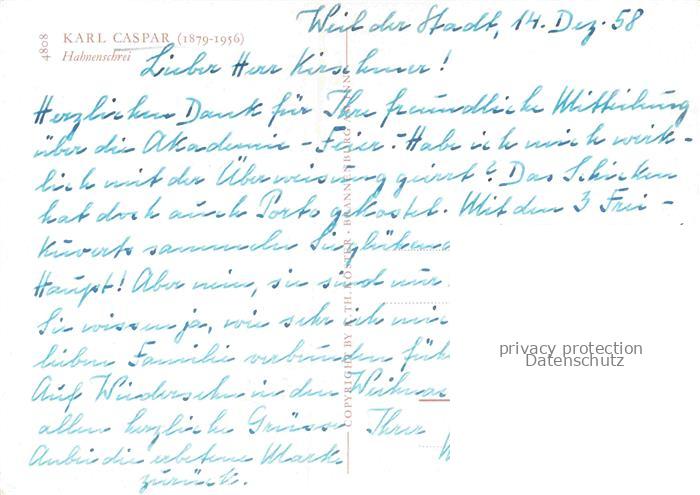 Weil der Stadt, 14. Dez. 58
4808 KARL CASPAR (1879-1956)
Hahnenschrei
Lieber Herr Kirschmer!
Herzlichen Dank für Ihre freundliche Mitteilung
über die Akademie-Feier. Habe ich mich wirk-
lich mit der Überweisung geirrt? Das Schicken
hat doch auch Porto gekostet. Mit den 3 Frei-
Kuverts sammeln Sie
Haupt! Aber nein, sie sind nur
Sie wissen ja, wie sehr ich mi
lieben Familie verbunden füh
Auf Wiedersehn in den Weihna
allen herzliche Grüsse Ihrer
Anbei die erbetene Marke
zurück.
COPYRIGHT BY
privacy protection
Datenschutz